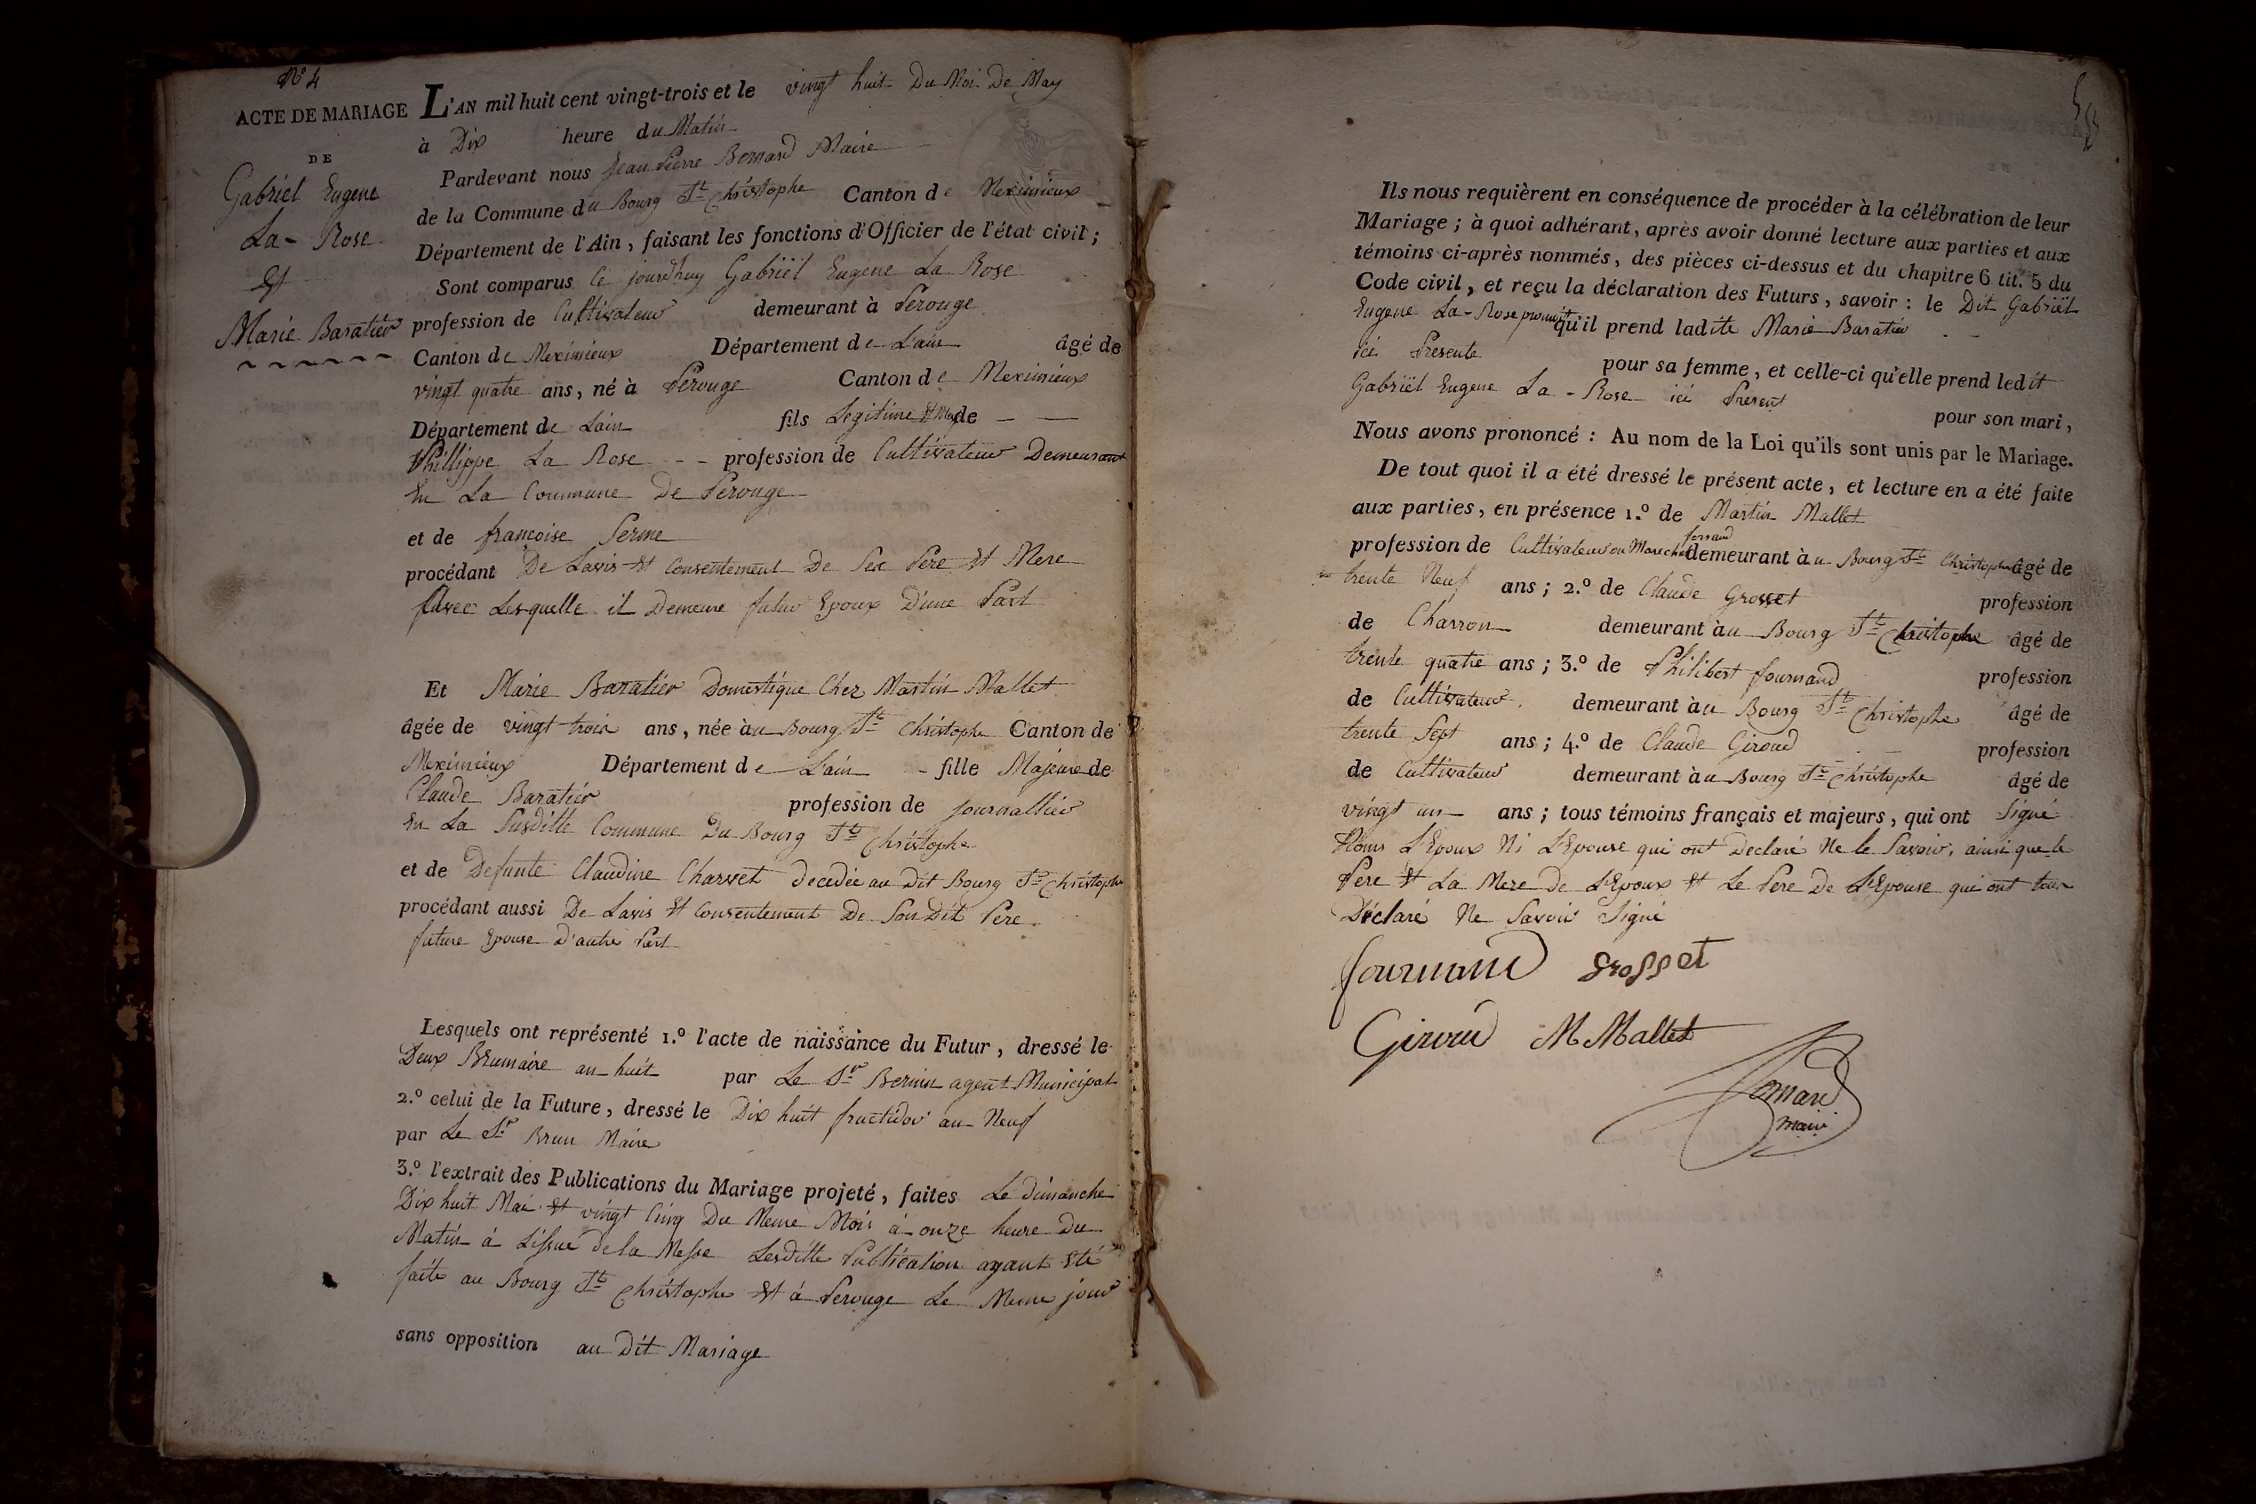 N° 4
ACTE DE MARIAGE
DE
Gabriel Eugene
La-Rose
Et
Marie Baratier
L'AN mil huit cent vingt-trois et le vingt huit Du Moi De May
à Dix heure du Matin
Pardevant nous Jean Pierre Bernard Maire
de la Commune du Bourg St Christophe Canton de Meximieux
Département de l'Ain, faisant les fonctions d'Officier de l'état civil;
Sont comparus Ce jourdhuy Gabriël Eugene La Rose
profession de Cultivateur demeurant à Perouge
Canton de Meximieux Département de Lain âgé de
vingt quatre ans, né à Perouge Canton de Meximieux
Département de Lain fils Legitime Et de
Phillippe La Rose profession de Cultivateur Demeurant
En La Commune De Perouge
et de francoise Perine
procédant De Lavis Et Consentement De Sex Pere Et Mere
Avec Lesquelle il Demeure futur Epoux D'une Part
Et Marie Baratier Domestique Chez Martin Mallet
âgée de vingt trois ans, née àu Bourg St Christophe Canton de
Meximieux Département de Lain fille Majeure de
Claude Baratier profession de journallier
En La Susditte Commune Du Bourg St Christophe
et de Defunte Claudine Charvet decedée au Dit Bourg St Christophe
procédant aussi De Lavis Et Consentement De Son Dit Pere
future Epouse D'autre Part
Lesquels ont représenté 1.° l'acte de naissance du Futur, dressé le
Deux Brumaire an huit par Le Sr Bernin agent Municipal
2.° celui de la Future, dressé le Dix huit fructidor an Neuf
par Le Sr Brun Maire
3.° l'extrait des Publications du Mariage projeté, faites Le dimanche
Dix huit Mai Et vingt Cinq Du Meme Mois à onze heure Du
Matin á Lissue de la Messe Lesditte Publication ayant Eté
faite au Bourg St Christophe Et á Perouge Le Meme jour
sans opposition au Dit Mariage
Ils nous requièrent en conséquence de procéder à la célébration de leur
Mariage; à quoi adhérant, après avoir donné lecture aux parties et aux
témoins ci-après nommés, des pièces ci-dessus et du chapitre 6 tit. 5 du
Code civil, et reçu la déclaration des Futurs, savoir: le Dit Gabriël
Eugene La-Rose qu'il prend ladite Marie Baratier
ici Presente pour sa femme, et celle-ci qu'elle prend ledit
Gabriël Eugene La-Rose ici Present pour son mari,
Nous avons prononcé: Au nom de la Loi qu'ils sont unis par le Mariage.
De tout quoi il a été dressé le présent acte, et lecture en a été faite
aux parties, en présence 1.° de Martin Mallet
profession de Cultivateur ou Marechal ferrand demeurant àu Bourg St Christophe âgé de
trente Neuf ans; 2.° de Claude Grosset profession
de Charron demeurant àu Bourg St Christophe âgé de
trente quatre ans; 3.° de Philibert fournand profession
de Cultivateur demeurant àu Bourg St Christophe âgé de
trente Sept ans; 4.° de Claude Giroud profession
de Cultivateur demeurant àu Bourg St Christophe âgé de
vingt un ans; tous témoins français et majeurs, qui ont Signé
Nous L'Epoux Ni L'Epouse qui ont Declaré Ne le Savoir, ainsi que le
Pere Et La Mere De L'Epoux Et Le Pere De L'Epouse qui ont tous
Déclaré Ne Savoir Signé
fournand Grosset
Giroud M Mallet
Bernard
maire